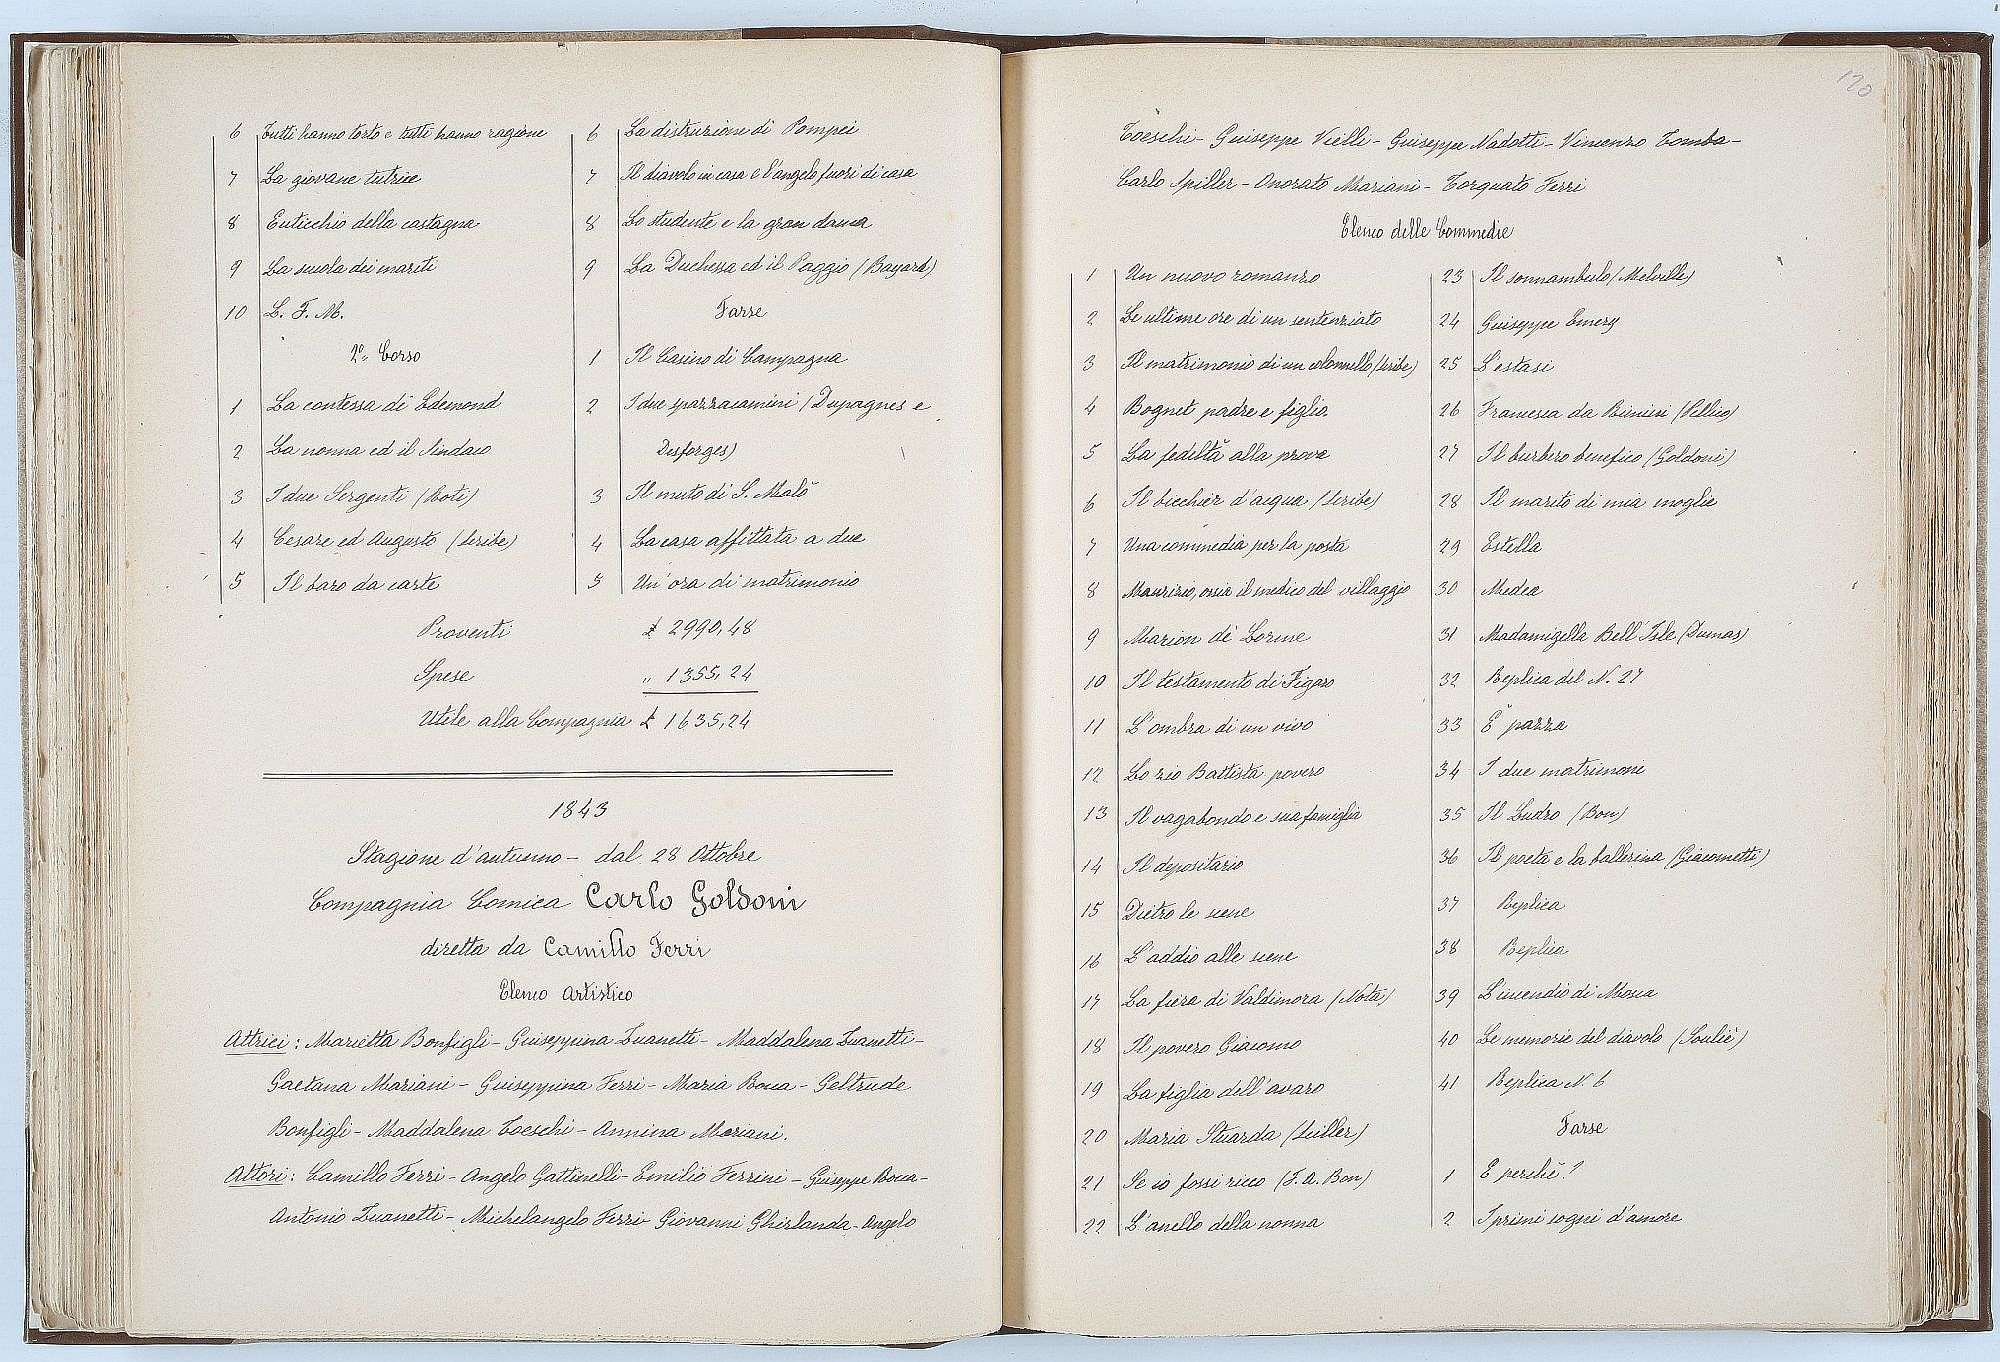 6 Tutti hanno torto e tutti hanno ragione
7 La giovane tutrice
8 Euticchio della castagna
9 La scuola dei mariti
10 L. F. M.
2º Corso
1 La contessa di Edemond
2 La nonna ed il Sindaco
3 I due Sergenti (Roti)
4 Cesare ed Augusto (Scribe)
5 Il baro da carte
6 La distruzione di Pompei
7 Il diavolo in casa e l'angelo fuori di casa
8 Lo studente e la gran dama
9 La Duchessa ed il Paggio (Bayard)
Farse
1 Il Casino di Campagna
2 I due spazzacamini (Dupagnes e
Desforges)
3 Il muto di S. Malò
4 La casa affittata a due
5 Un'ora di matrimonio
Proventi £ 2990,48
Spese „ 1355,24
Utile alla Compagnia £ 1635,24
1843
Stagione d'autunno - dal 28 Ottobre
Compagnia Comica Carlo Goldoni
diretta da Camillo Ferri
Elenco Artistico
Attrici: Marietta Bonfigli - Giuseppina Zuanetti - Maddalena Zuanetti -
Gaetana Mariani - Giuseppina Ferri - Maria Bocca - Geltrude
Bonfigli - Maddalena Toeschi - Annina Mariani.
Attori: Camillo Ferri - Angelo Gattinelli - Emilio Ferrini - Giuseppe Bocca -
Antonio Zuanetti - Michelangelo Ferri Giovanni Ghirlanda - Angelo
120
Toeschi - Giuseppe Vielli - Giuseppe Nadotti - Vincenzo Tomba -
Carlo Spiller - Onorato Mariani - Torquato Ferri
Elenco delle Commedie
1 Un nuovo romanzo
2 Le ultime ore di un sentenziato
3 Il matrimonio di un colonnello (Scribe)
4 Bognet padre e figlio
5 La fedeltà alla prova
6 Il bicchier d'acqua (Scribe)
7 Una commedia per la posta
8 Maurizio, ossia il medico del villaggio
9 Marion dè Lorme
10 Il testamento di Figaro
11 L'ombra di un vivo
12 Lo zio Battista povero
13 Il vagabondo e sua famiglia
14 Il depositario
15 Dietro le scene
16 L'addio alle scene
17 La fiera di Valdimora (Nota)
18 Il povero Giacomo
19 La figlia dell'avaro
20 Maria Stuarda (Sciller)
21 Se io fossi ricco (F. A. Bon)
22 L'anello della nonna
23 Il sonnambulo (Melville)
24 Giuseppe Emery
25 L'estasi
26 Francesca da Rimini (Pellico)
27 Il burbero benefico (Goldoni)
28 Il marito di mia moglie
29 Estella
30 Medea
31 Madamigella Bell'Isle (Dumas)
32 Replica del N. 27
33 E' pazza
34 I due matrimoni
35 Il Ludro (Bon)
36 Il poeta e la ballerina (Giacometti)
37 Replica
38 Replica
39 L'incendio di Mosca
40 Le memorie del diavolo (Soulié)
41 Replica N. 6
Farse
1 E perchè?
2 I primi sogni d'amore